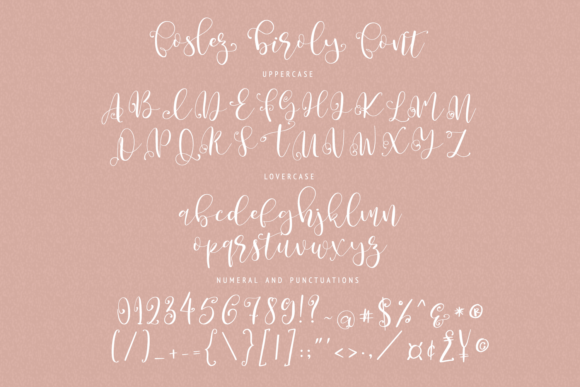 Font
UPPERCASE
ABCDEFGHIJKLMN
OPQRSTUVWXYZ
LOVERCASE
abcdefghijklmn
opqrstuvwxyz
NUMERAL AND PUNCTUATIONS
0123456789!?~@#$%^&*®
(/)_+-={\}[|]:;"'<>.,/¤¢£¥©